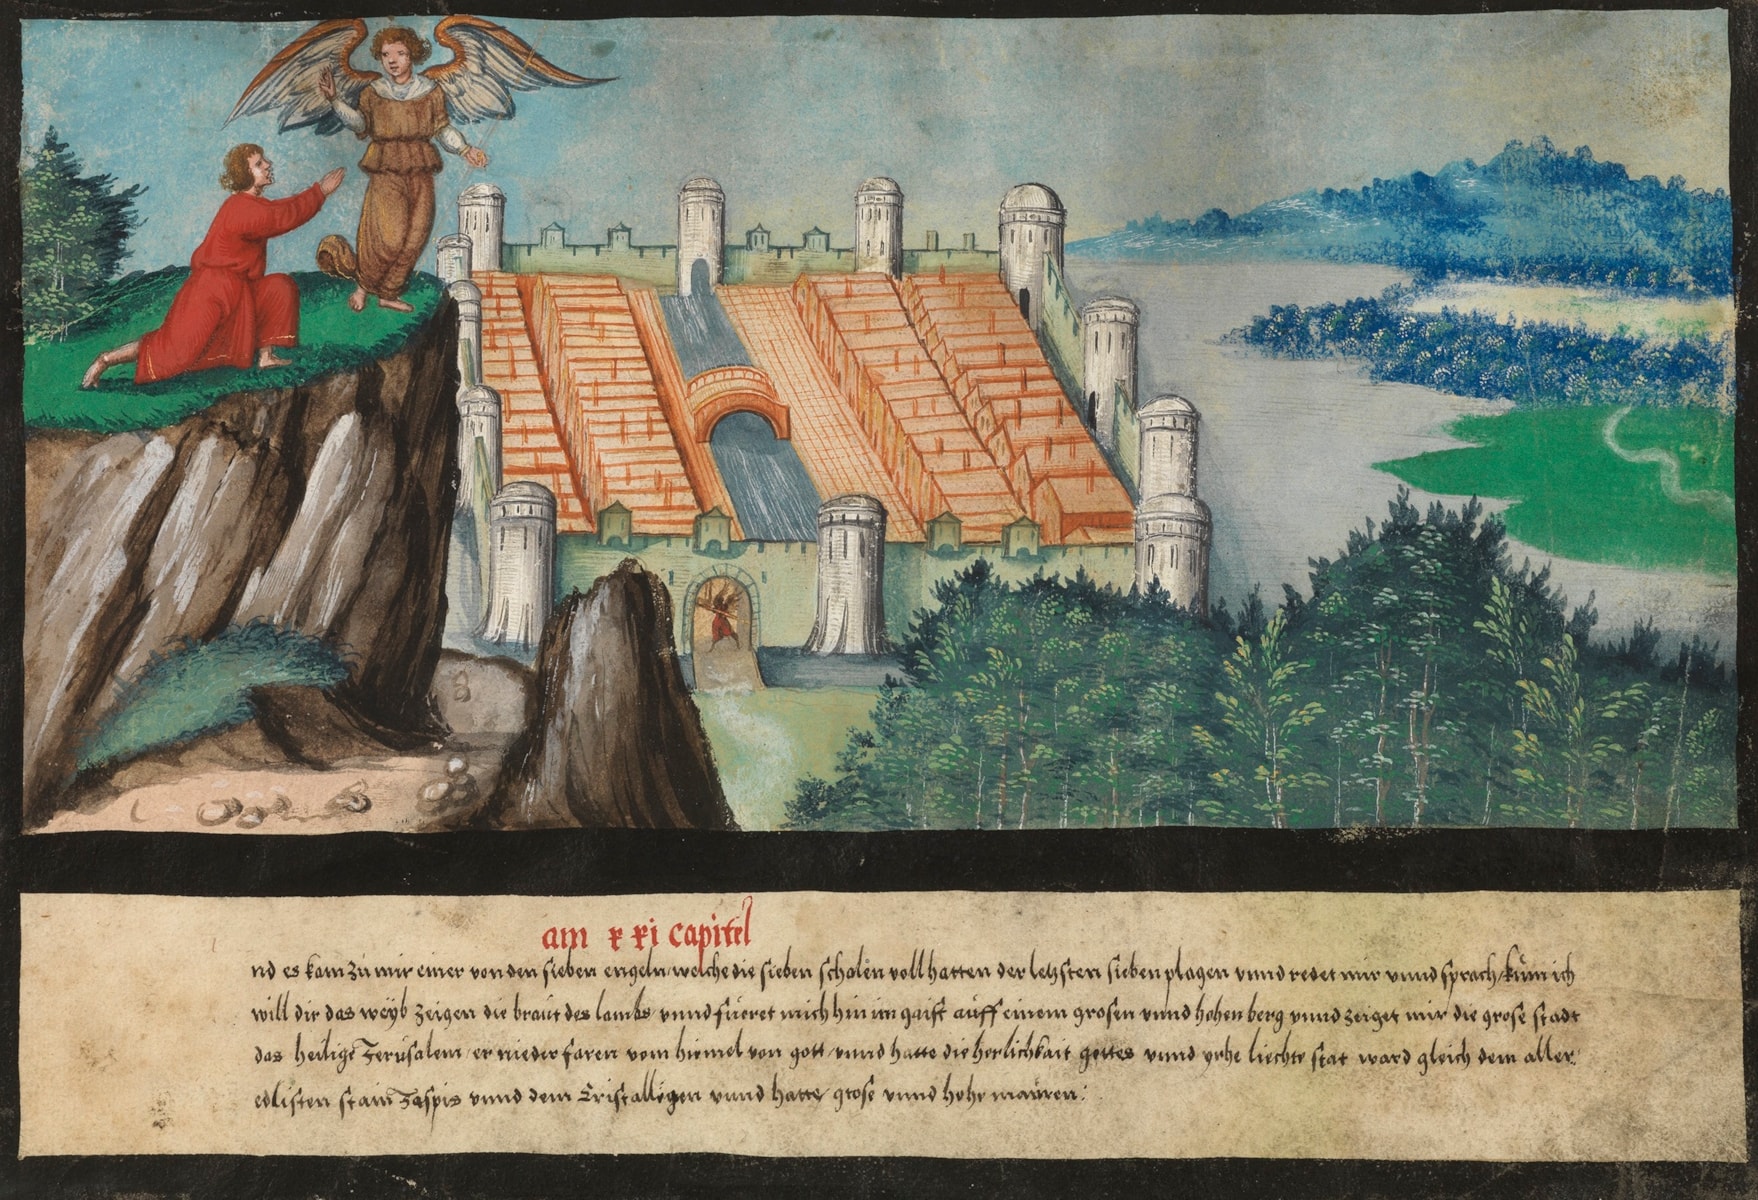 am xxi capitel
nd es kam zu mir einer von den sieben engeln / welche die sieben scholen voll hatten der letzsten sieben plagen vnnd redet mir vnnd sprach / kum ich
will dir das weyb zeigen die braut des lambs / vnnd fueret mich hin im gaist auff einem grosen vnnd hohen berg vnnd zeiget mir die grose stadt
das heilige Jerusalem / er nieder faren vom hiemel von gott / vnnd hatte die herlichkait gottes vnnd yrhe liechte stat ward gleich dem aller
edlisten stain Jaspis vnnd dem Cristalligen vnnd hatte / grose vnnd hohe mauren :